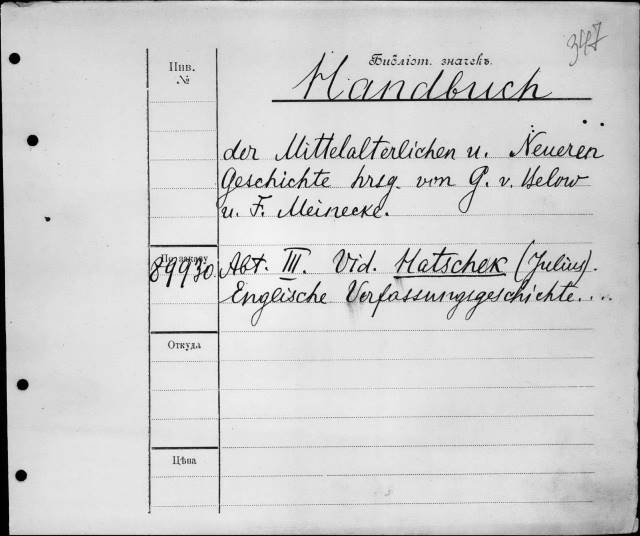 347
Инв.
№
Библіот. значекъ.
Handbuch
der Mittelalterlichen u. Neueren
Geschichte hrsg. von G. v. Below
u. F. Meinecke.
По заказу
89930. Abt. III. Vid. Hatschek (Julius).
Englische Verfassungsgeschichte...
Откуда
Цѣна